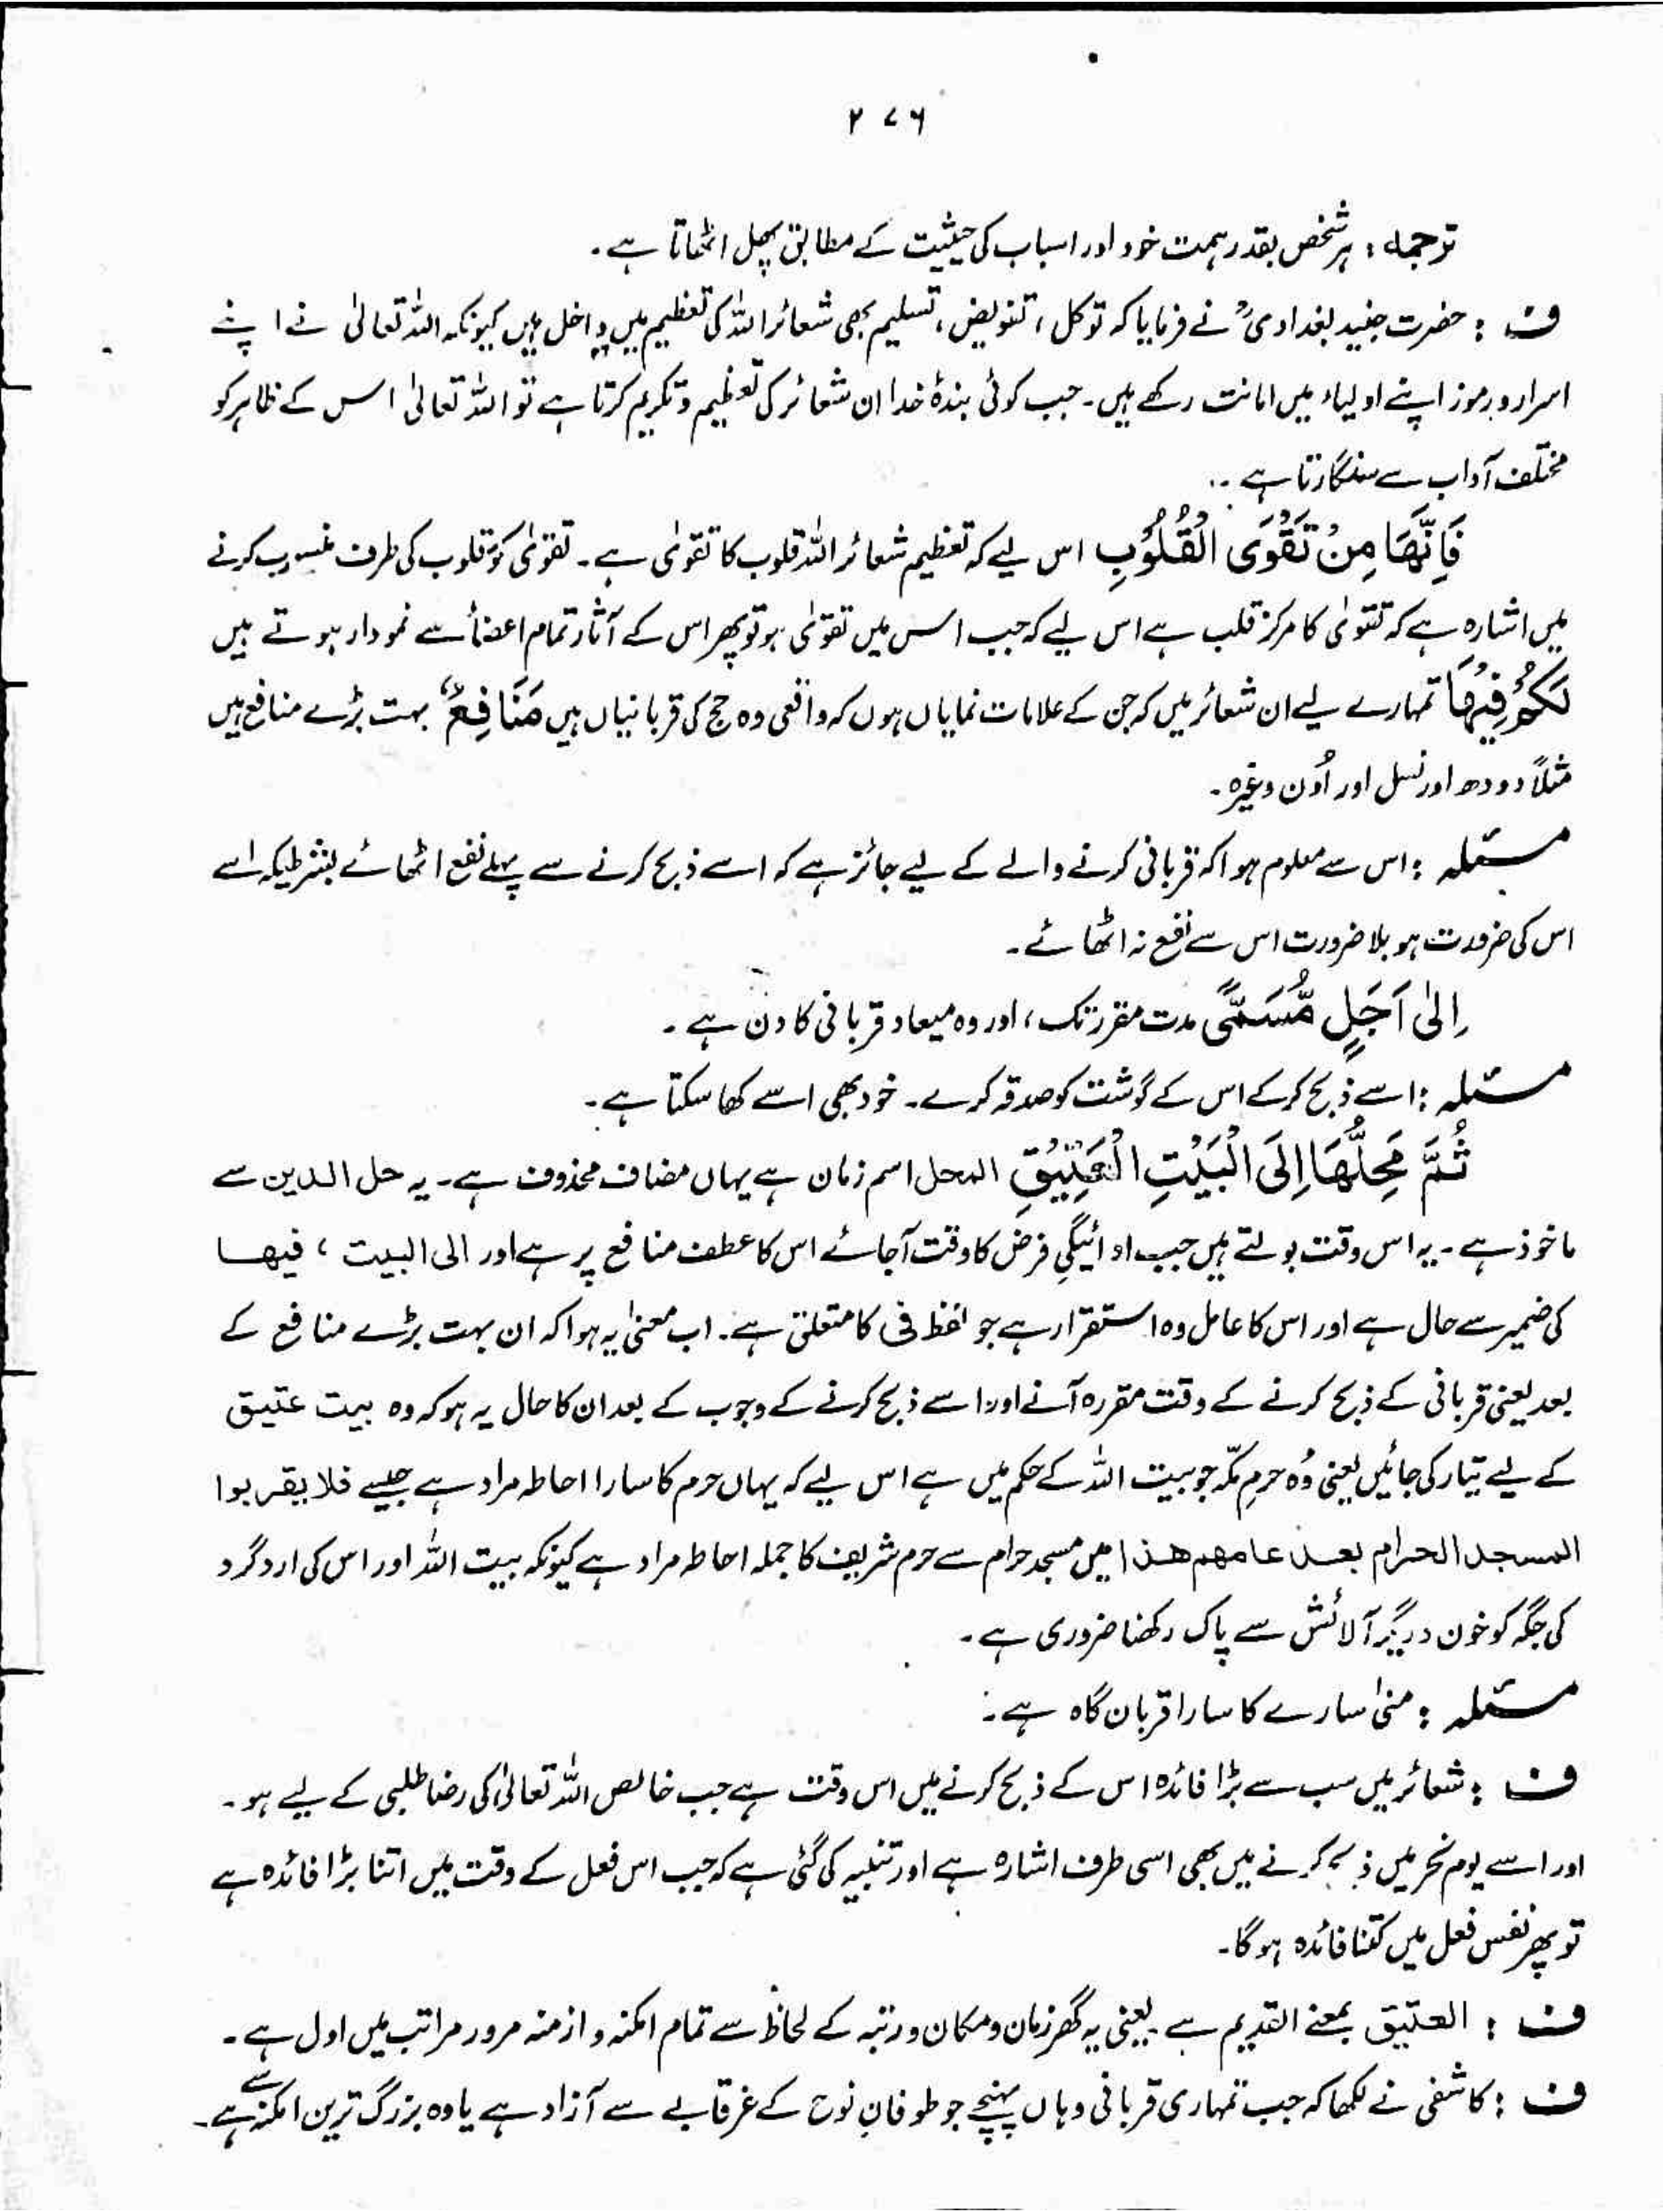 ۲۷۶
ترجمہ : ہر شخص بقدر ہمت خود اور اسباب کی حیثیت کے مطابق پھل اٹھاتا ہے۔
ف : حضرت جنید بغدادیؒ نے فرمایا کہ توکل، تفویض، تسلیم بھی شعائر اللہ کی تعظیم میں داخل ہیں کیونکہ اللہ تعالیٰ نے اپنے
اسرار و رموز اپنے اولیاء میں امانت رکھے ہیں۔ جب کوئی بندۂ خدا ان شعائر کی تعظیم و تکریم کرتا ہے تو اللہ تعالیٰ اس کے ظاہر کو
مختلف آداب سے سنگارتا ہے۔
فَاِنَّهَا مِنْ تَقْوَى الْقُلُوْبِ اس لیے کہ تعظیم شعائر اللہ قلوب کا تقویٰ ہے۔ تقویٰ کو قلوب کی طرف منسوب کرنے
میں اشارہ ہے کہ تقویٰ کا مرکز قلب ہے اس لیے کہ جب اس میں تقویٰ ہو تو پھر اس کے آثار تمام اعضأ سے نمودار ہوتے ہیں
لَكُمْ فِيْهَا تمہارے لیے ان شعائر میں کہ جن کے علامات نمایاں ہوں کہ واقعی وہ حج کی قربانیاں ہیں مَنَافِعُ بہت بڑے منافع ہیں
مثلاً دودھ اور نسل اور اُون وغیرہ۔
مسئلہ : اس سے معلوم ہوا کہ قربانی کرنے والے کے لیے جائز ہے کہ اسے ذبح کرنے سے پہلے نفع اٹھائے بشرطیکہ اسے
اس کی ضرورت ہو بلا ضرورت اس سے نفع نہ اٹھائے۔
اِلٰى اَجَلٍ مُّسَمًّى مدت مقرر تک، اور وہ میعاد قربانی کا دن ہے۔
مسئلہ : اسے ذبح کرکے اس کے گوشت کو صدقہ کرے۔ خود بھی اسے کھا سکتا ہے۔
ثُمَّ مَحِلُّهَا اِلَى الْبَيْتِ الْعَتِيْقِ المحل اسم زمان ہے یہاں مضاف محذوف ہے۔ یہ حل الدین سے
ماخوذ ہے۔ یہ اس وقت بولتے ہیں جب ادائیگیِ فرض کا وقت آجائے اس کا عطف منافع پر ہے اور الی البیت ، فیھا
کی ضمیر سے حال ہے اور اس کا عامل وہ استقرار ہے جو لفظ فی کا متعلق ہے۔ اب معنیٰ یہ ہوا کہ ان بہت بڑے منافع کے
بعد یعنی قربانی کے ذبح کرنے کے وقت مقررہ آنے اور اسے ذبح کرنے کے وجوب کے بعد ان کا حال یہ ہو کہ وہ بیت عتیق
کے لیے تیار کی جائیں یعنی وُہ حرمِ مکّہ جو بیت اللہ کے حکم میں ہے اس لیے کہ یہاں حرم کا سارا احاطہ مراد ہے جیسے فلا یقربوا
المسجد الحرام بعد عامھم ھذا میں مسجد حرام سے حرم شریف کا جملہ احاطہ مراد ہے کیونکہ بیت اللہ اور اس کی ارد گرد
کی جگہ کو خون و دیگر آلائش سے پاک رکھنا ضروری ہے۔
مسئلہ : منیٰ سارے کا سارا قربان گاہ ہے۔
ف : شعائر میں سب سے بڑا فائدہ اس کے ذبح کرنے میں اس وقت ہے جب خالص اللہ تعالیٰ کی رضا طلبی کے لیے ہو۔
اور اسے یوم نحر میں ذبح کرنے میں بھی اسی طرف اشارہ ہے اور تنبیہ کی گئی ہے کہ جب اس فعل کے وقت میں اتنا بڑا فائدہ ہے
تو پھر نفس فعل میں کتنا فائدہ ہوگا۔
ف : العتیق بمعنے القدیم ہے۔ یعنی یہ گھر زمان و مکان و رتبہ کے لحاظ سے تمام امکنہ و ازمنہ مرور مراتب میں اول ہے۔
ف : کاشفی نے لکھا کہ جب تمہاری قربانی وہاں پہنچے جو طوفانِ نوح کے غرقابے سے آزاد ہے یا وہ بزرگ ترین امکنہ سے ہے۔